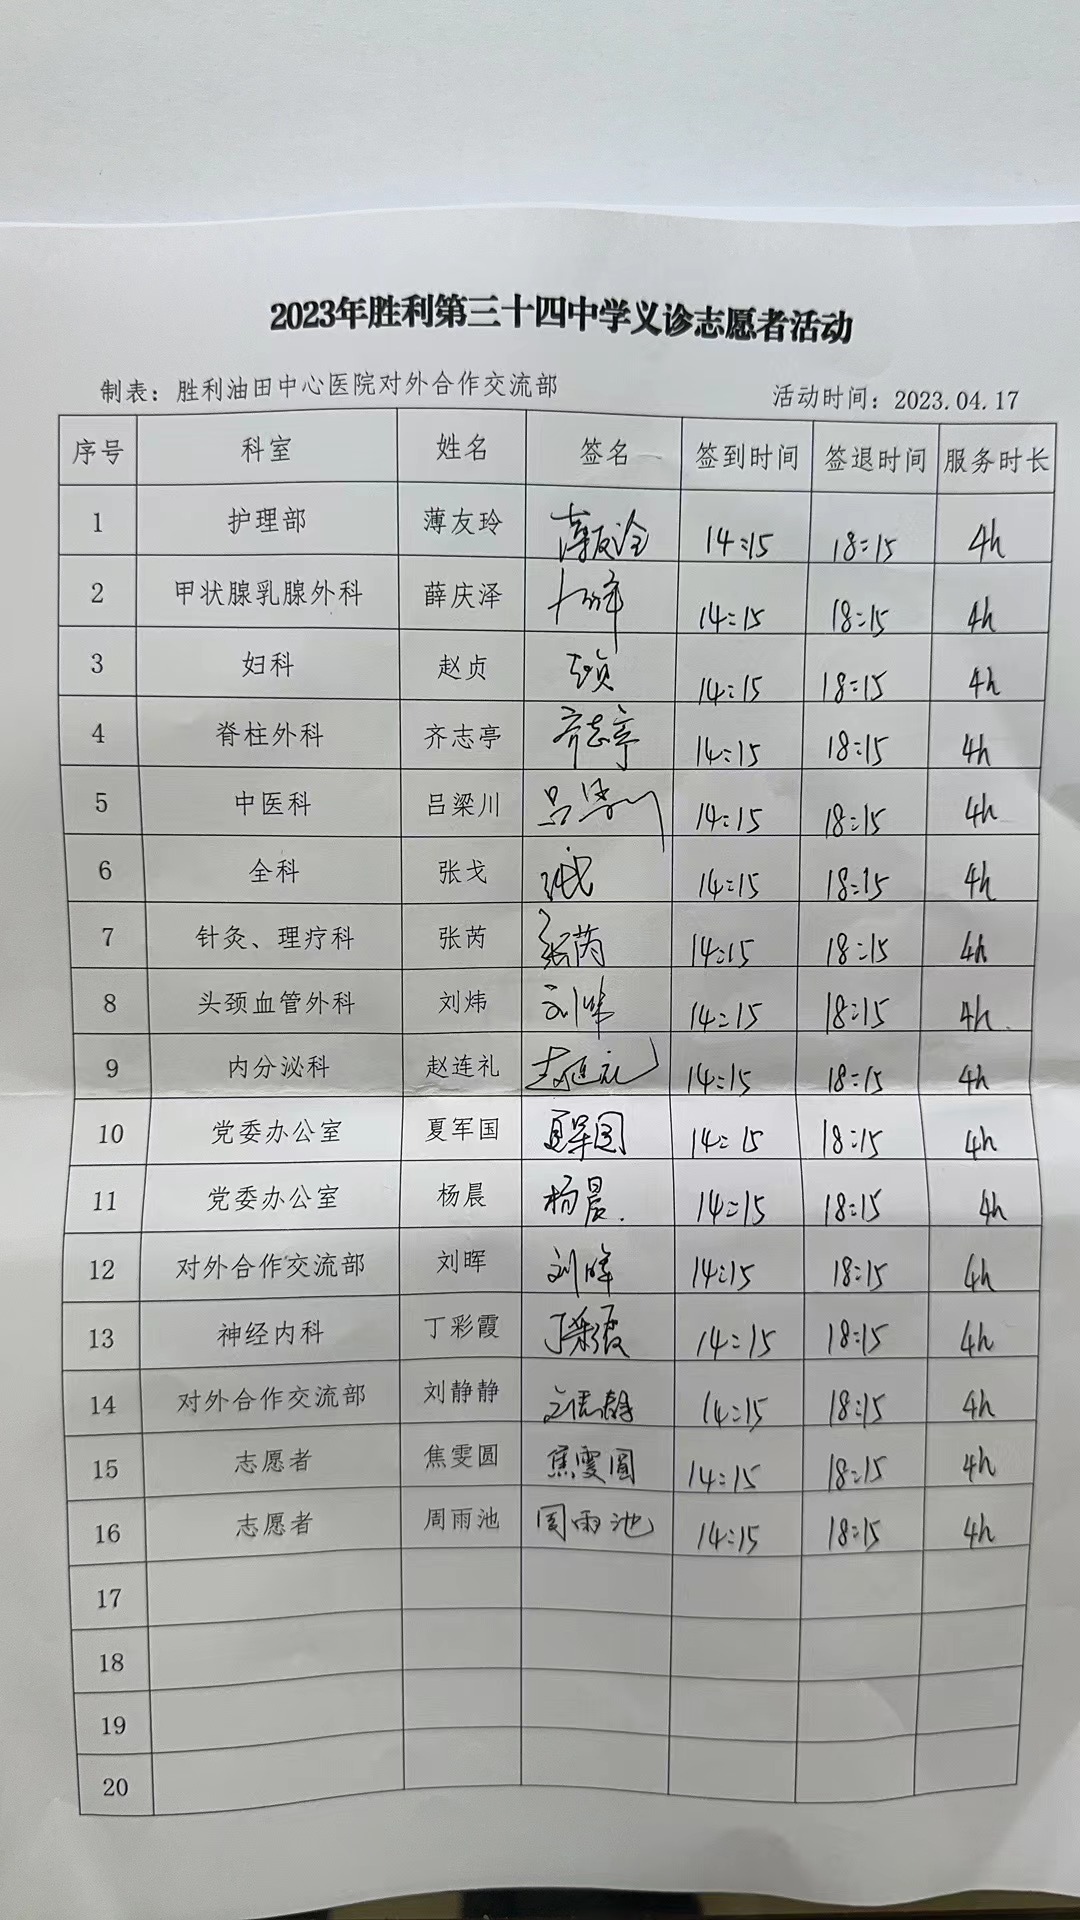 2023年胜利第三十四中学义诊志愿者活动
制表：胜利油田中心医院对外合作交流部 活动时间：2023.04.17
序号 科室 姓名 签名 签到时间 签退时间 服务时长
1 护理部 薄友玲 薄友玲 14:15 18:15 4h
2 甲状腺乳腺外科 薛庆泽 14:15 18:15 4h
3 妇科 赵贞 赵贞 14:15 18:15 4h
4 脊柱外科 齐志亭 齐志亭 14:15 18:15 4h
5 中医科 吕梁川 吕梁川 14:15 18:15 4h
6 全科 张戈 张戈 14:15 18:15 4h
7 针灸、理疗科 张芮 张芮 14:15 18:15 4h
8 头颈血管外科 刘炜 刘炜 14:15 18:15 4h.
9 内分泌科 赵连礼 赵连礼 14:15 18:15 4h
10 党委办公室 夏军国 夏军国 14:15 18:15 4h
11 党委办公室 杨晨 杨晨. 14:15 18:15 4h
12 对外合作交流部 刘晖 刘晖 14:15 18:15 4h
13 神经内科 丁彩霞 丁彩霞 14:15 18:15 4h
14 对外合作交流部 刘静静 刘静静 14:15 18:15 4h
15 志愿者 焦雯圆 焦雯圆 14:15 18:15 4h
16 志愿者 周雨池 周雨池 14:15 18:15 4h
17
18
19
20